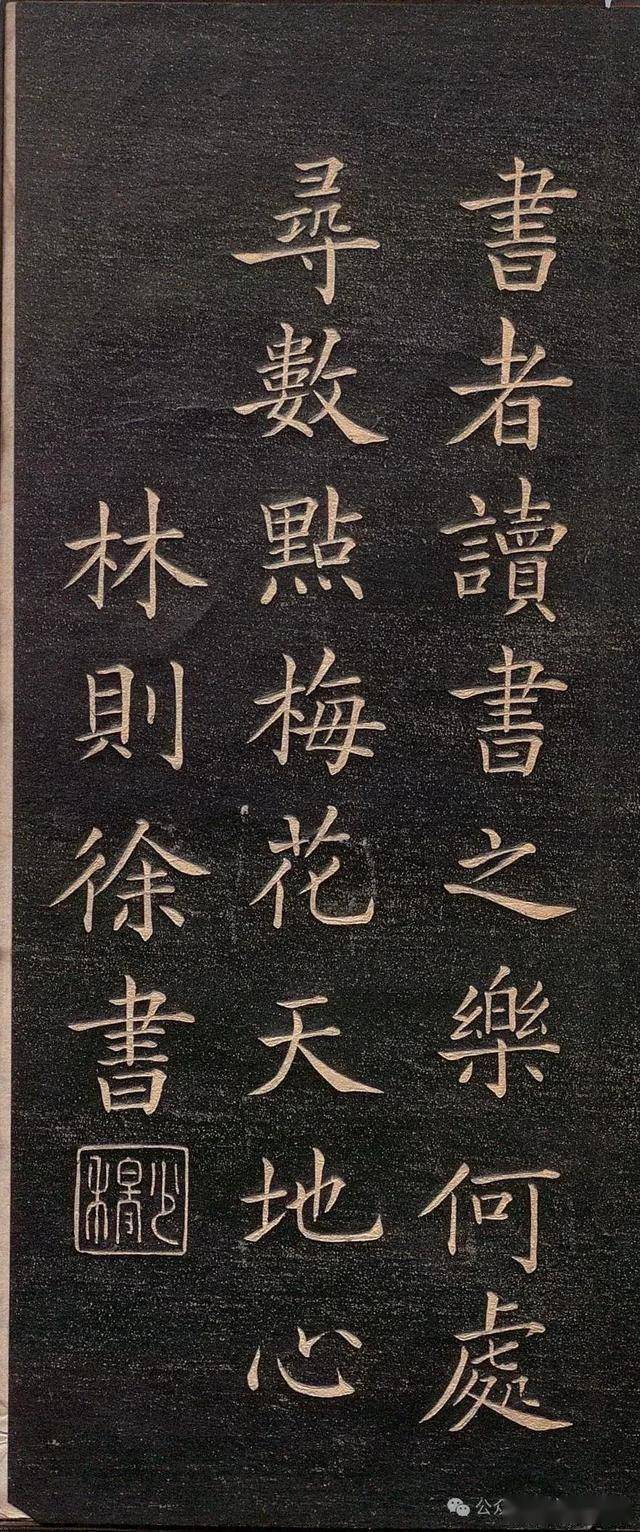 書者讀書之樂何處
尋數點梅花天地心
林則徐書
少穆
公众